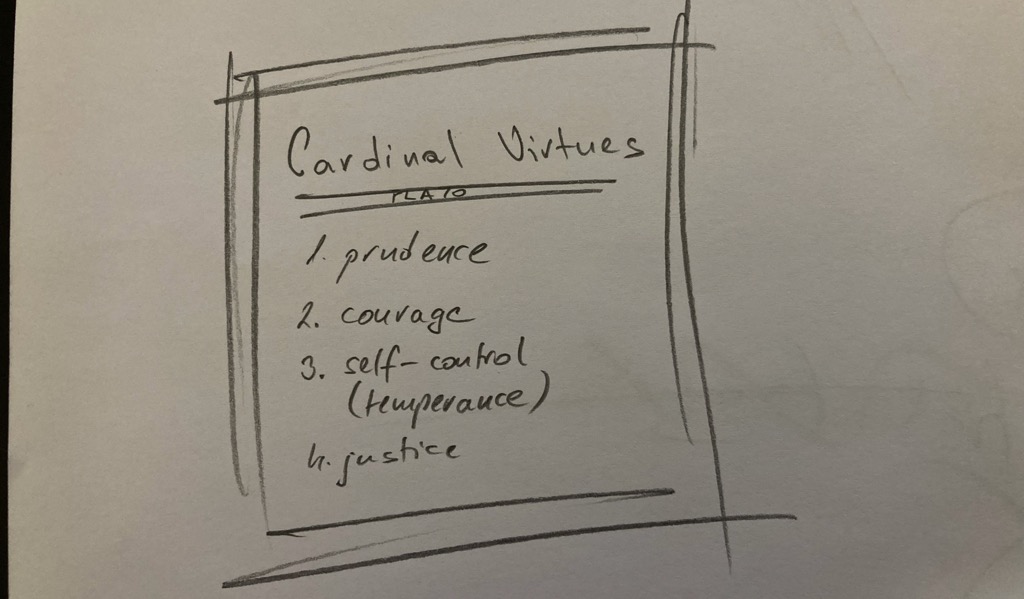 Cardinal Virtues
PLATO
1. prudence
2. courage
3. self-control
(temperance)
4. justice